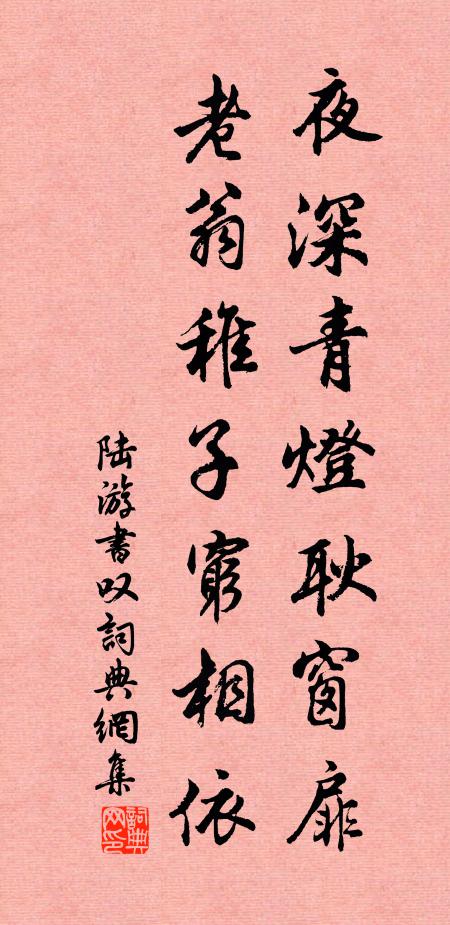 夜深青燈耿窗扉
老翁稚子窮相依
陆游書叹詞典網集
詞典网印